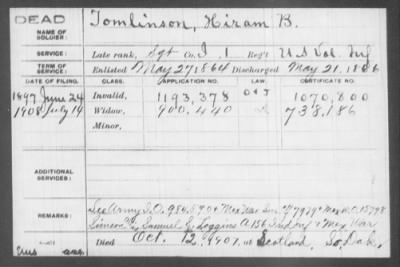 DEAD
NAME OF SOLDIER: Tomlinson, Hiram B.
SERVICE: Late rank, Sgt Co. I, 1 Reg't U.S. Vol. Inf
TERM OF SERVICE: Enlisted May 27, 1864 Discharged May 21, 1866
DATE OF FILING. CLASS. APPLICATION NO. LAW. CERTIFICATE NO.
1897 June 24 Invalid, 1193,378 1070,800
1908 July 14 Widow, 900,440 738,186
Minor,
ADDITIONAL SERVICES:
REMARKS: See Army I.O. 984,590 & Mex War Sur. 17979 & Mex W.O. 15798
Samuel E. Loggins A 156 & Mex War
Died Oct. 12, 1907, at Scotland, So. Dak.